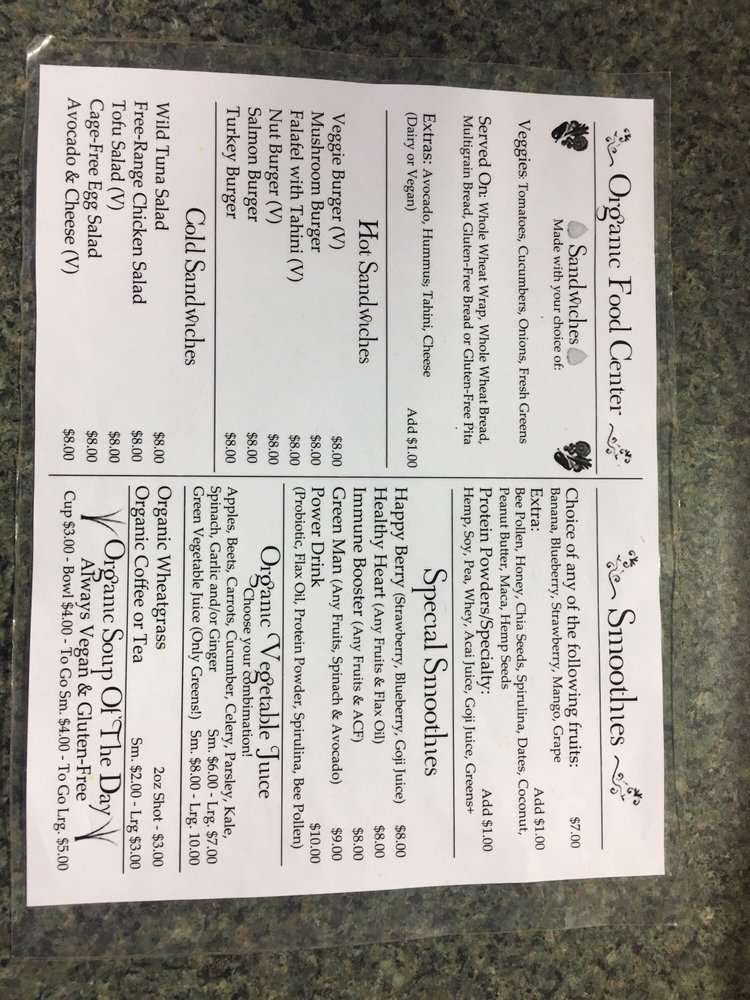 Organic Food Center
Sandwiches
Made with your choice of:
Veggies: Tomatoes, Cucumbers, Onions, Fresh Greens
Served On: Whole Wheat Wrap, Whole Wheat Bread,
Multigrain Bread, Gluten-Free Bread or Gluten-Free Pita
Extras: Avocado, Hummus, Tahini, Cheese Add $1.00
(Dairy or Vegan)
Hot Sandwiches
Veggie Burger (V) $8.00
Mushroom Burger $8.00
Falafel with Tahini (V) $8.00
Nut Burger (V) $8.00
Salmon Burger $8.00
Turkey Burger $8.00
Cold Sandwiches
Wild Tuna Salad $8.00
Free-Range Chicken Salad $8.00
Tofu Salad (V) $8.00
Cage-Free Egg Salad $8.00
Avocado & Cheese (V) $8.00
Smoothies
Choice of any of the following fruits: $7.00
Banana, Blueberry, Strawberry, Mango, Grape
Extra: Add $1.00
Bee Pollen, Honey, Chia Seeds, Spirulina, Dates, Coconut,
Peanut Butter, Maca, Hemp Seeds
Protein Powders/Specialty: Add $1.00
Hemp, Soy, Pea, Whey, Acai Juice, Goji Juice, Greens+
Special Smoothies
Happy Berry (Strawberry, Blueberry, Goji Juice) $8.00
Healthy Heart (Any Fruits & Flax Oil) $8.00
Immune Booster (Any Fruits & ACF) $8.00
Green Man (Any Fruits, Spinach & Avocado) $9.00
Power Drink $10.00
(Probiotic, Flax Oil, Protein Powder, Spirulina, Bee Pollen)
Organic Vegetable Juice
Choose your combimation!
Apples, Beets, Carrots, Cucumber, Celery, Parsley, Kale,
Spinach, Garlic and/or Ginger Sm. $6.00 - Lrg. $7.00
Green Vegetable Juice (Only Greens!) Sm. $8.00 - Lrg. 10.00
Organic Wheatgrass 2oz Shot - $3.00
Organic Coffee or Tea Sm. $2.00 - Lrg $3.00
Organic Soup Of The Day
Always Vegan & Gluten-Free
Cup $3.00 - Bowl $4.00 - To Go Sm. $4.00 - To Go Lrg. $5.00